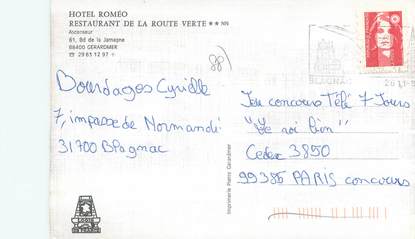 HOTEL ROMÉO
RESTAURANT DE LA ROUTE VERTE ★★ NN
Ascenseur
61, Bd de la Jamagne
88400 GERARDMER
☎ 29 63 12 97 +
(88)
Bourdages Cyrille
7, impasse de Normandi
31700 Blagnac
BLAGNAC
Jeu concours Télé 7 Jours
"Le roi lion"
Cedex 3850
99385 PARIS concours
Imprimerie Pierrat Gérardmer
LOGIS
DE FRANCE